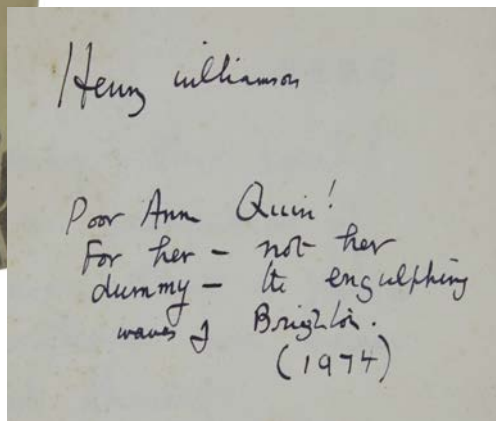 Henry Williamson
Poor Ann Quin!
For her – not her
dummy – the engulphing
waves of Brighton.
(1974)